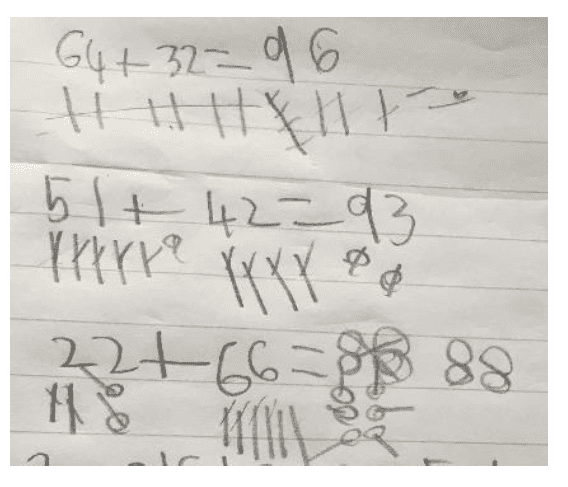 64+32=96
51+42=93
22+66=88